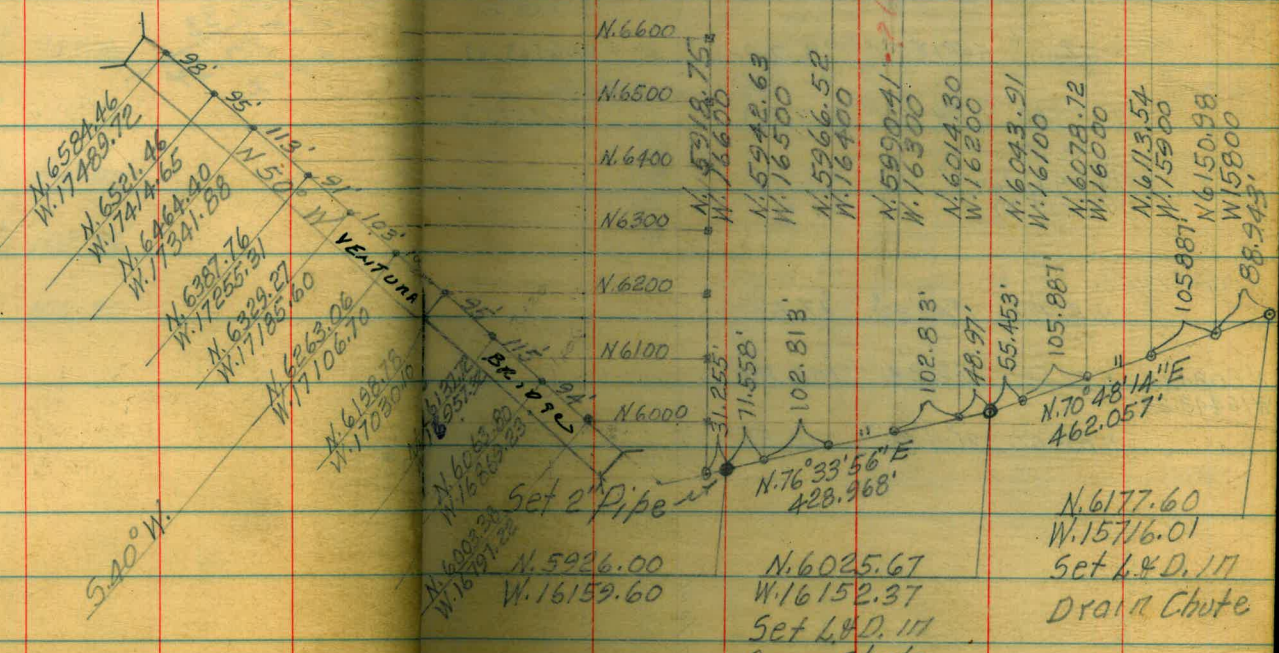 98'
95'
113'
91'
103'
N 50° W
VENTURA
BRIDGE
95'
115'
94'
N.6584.46
W.17489.72
N.6521.46
W.17414.65
N.6464.40
W.17341.88
N.6387.76
W.17255.31
N.6329.27
W.17185.60
N.6263.06
W.17106.70
N.6198.78
N.6063.80
W.16869.23
N.6003.38
W.16797.22
S.40° W.
N.6600
N.6500
N.6400
N6300
N.6200
N6100
N.6000
N.5918.75
W.16600
N.5942.63
W.16500
N.5966.52
W.16400
N.5990.41
W.16300
N.6014.30
W.16200
N.6043.91
W.16100
N.6078.72
W.16000
N.6113.54
W.15900
N6150.98
W15800
31.255'
71.558'
102.813'
102.813'
48.97'
55.453'
105.887'
"
105.887'
88.943'
N.76°33'56"E
428.968'
N.70°48'14"E
462.057'
Set 2" Pipe
N.5926.00
W.16159.60
N.6025.67
W.16152.37
Set L.&D. in
N.6177.60
W.15716.01
Set L.&D. in
Drain Chute